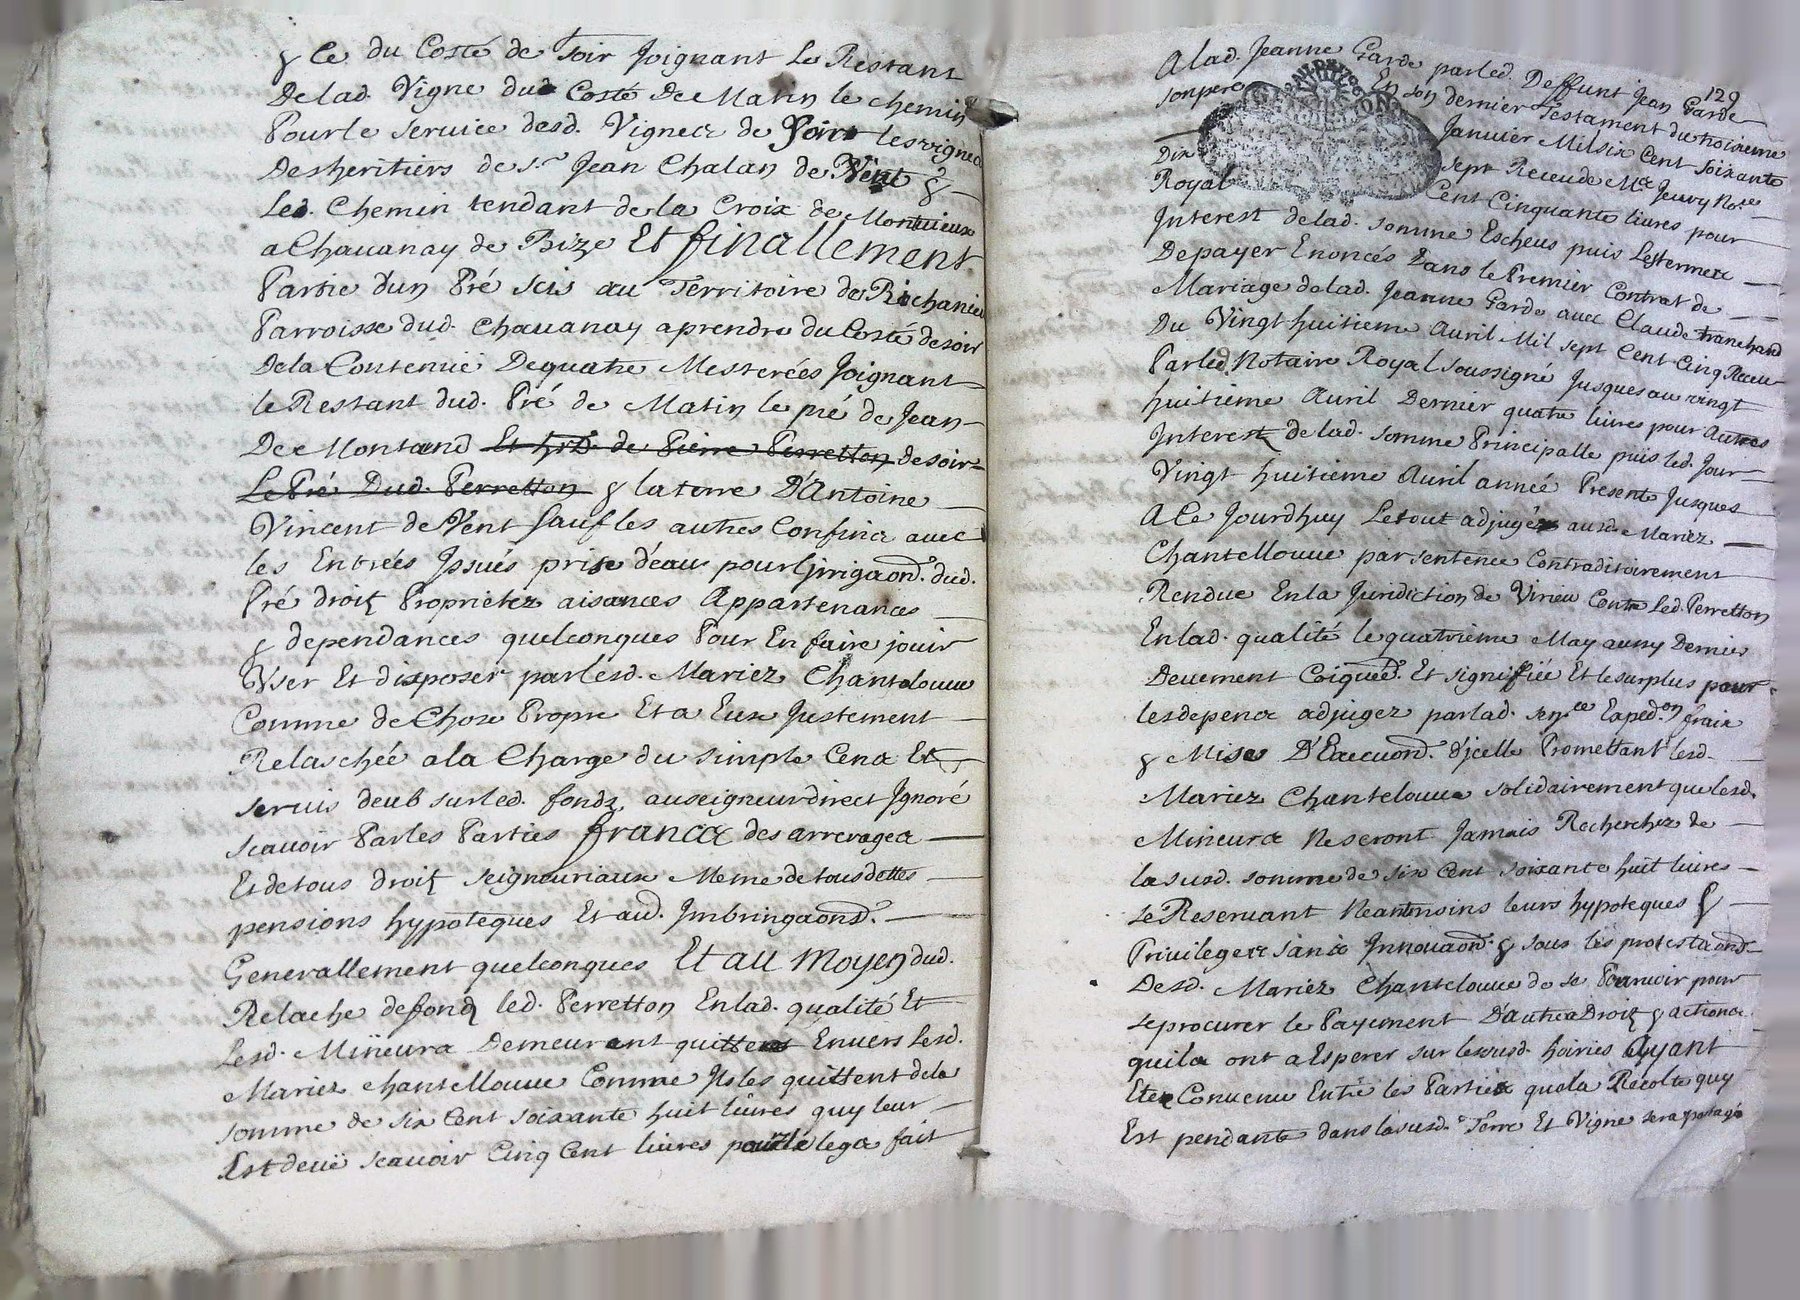 & Ce du Costé de soir Joignant Le Restant
Delad. Vigne dud Costé De Matin le chemin
Pour le service desd. Vignes de soir les vignes
Des heritiers de Sr Jean Chalan de Vent &
Led. Chemin tendant de la Croix de Montuieux
a Chauanay de Bize Et finallement
Partie d'un Pré scis au Territoire de Richanieu
Parroisse dud. Chauanay a prendre du Costé de soir
De la Contenüe De quatre Mesterées Joignant
le Restant dud. Pré de Matin le pré de Jean
De Montand Et hrs. de Pierre Perretton de soir
Le Pré Dud. Perretton & la terre D'Antoine
Vincent de Vent sauf les autres Confins avec
les Entrées Issués prise d'eau pour Lirrigaond. dud.
Pré droit Proprietez aisances Appartenances
& dependances quelconques Pour En faire jouir
User Et disposer par lesd. Mariez Chantelouue
Comme de Chose Propre Et a Eux Justement
Relaschée a la Charge du simple Cens Et
servis deub sur led. fondz, au seigneur direct Ignoré
scauoir Par les Parties francs des arrerages
Et de tous droit seigneuriaux Meme de tous dettes
pensions hypoteques Et aud. Imbringaond.
Generallement quelconques Et au moyen dud.
Relache de fond led. Perretton En lad. qualité Et
Lesd. Mineurs Demeurent quittes Enuers Lesd.
Mariez Chantellouue Comme Ils les quittent de la
somme de six Cent soixante huit liures quy leur
Est deuë scauoir Cinq Cent liures pour le legs fait
129
A lad. Jeanne Garde par led. Deffunt Jean Garde
son pere En son dernier Testament du troizieme
Januier Mil six Cent soixante
Dix sept Receu de Me Jeury Nore
Royal Cent Cinquante liures pour
Interest de lad. somme Escheus puis Les termes
De payer Enoncés Dans le Premier Contrat de
Mariage de lad. Jeanne Garde auec Claude tranchand
Du Vingt huitieme Auril Mil sept Cent Cinq Receu
Par led. Notaire Royal soussigné Jusques au vingt
huitieme Auril Dernier quatre liures pour Autres
Interest de lad. somme Principalle puis led. Jour
Vingt huitieme Auril année Presente Jusques
A Ce Jourdhuy Le tout adjugée ausd. Mariez
Chantellouue par sentence Contraditoirement
Rendue En la Juridiction de Virieu Contre Led. Perretton
En lad. qualité le quatrieme May aussy Dernier
Deuement Coiquée. Et signiffiée Et le surplus pour
les depens adjugez par lad. sence Exped.on frais
& Mise D'Execuond. d'jcelle Promettant lesd.
Mariez Chantelouue solidairement que lesd.
Mineurs Ne seront Jamais Recherchez de
la susd. somme de six Cent soixante huit liures
se Reseruant Neantmoins leurs hypoteques &
Priuileges sans Innouaond. & sous les protestaond.
Desd. Mariez Chantelouue de se Pouruoir pour
se procurer le Payement D'autres Droit & actions
quils ont a Esperer sur les susd. hoiries Ayant
Eté Conuenu Entre les Parties que la Recolte quy
Est pendante dans la susd. Terre Et Vigne sera partagé